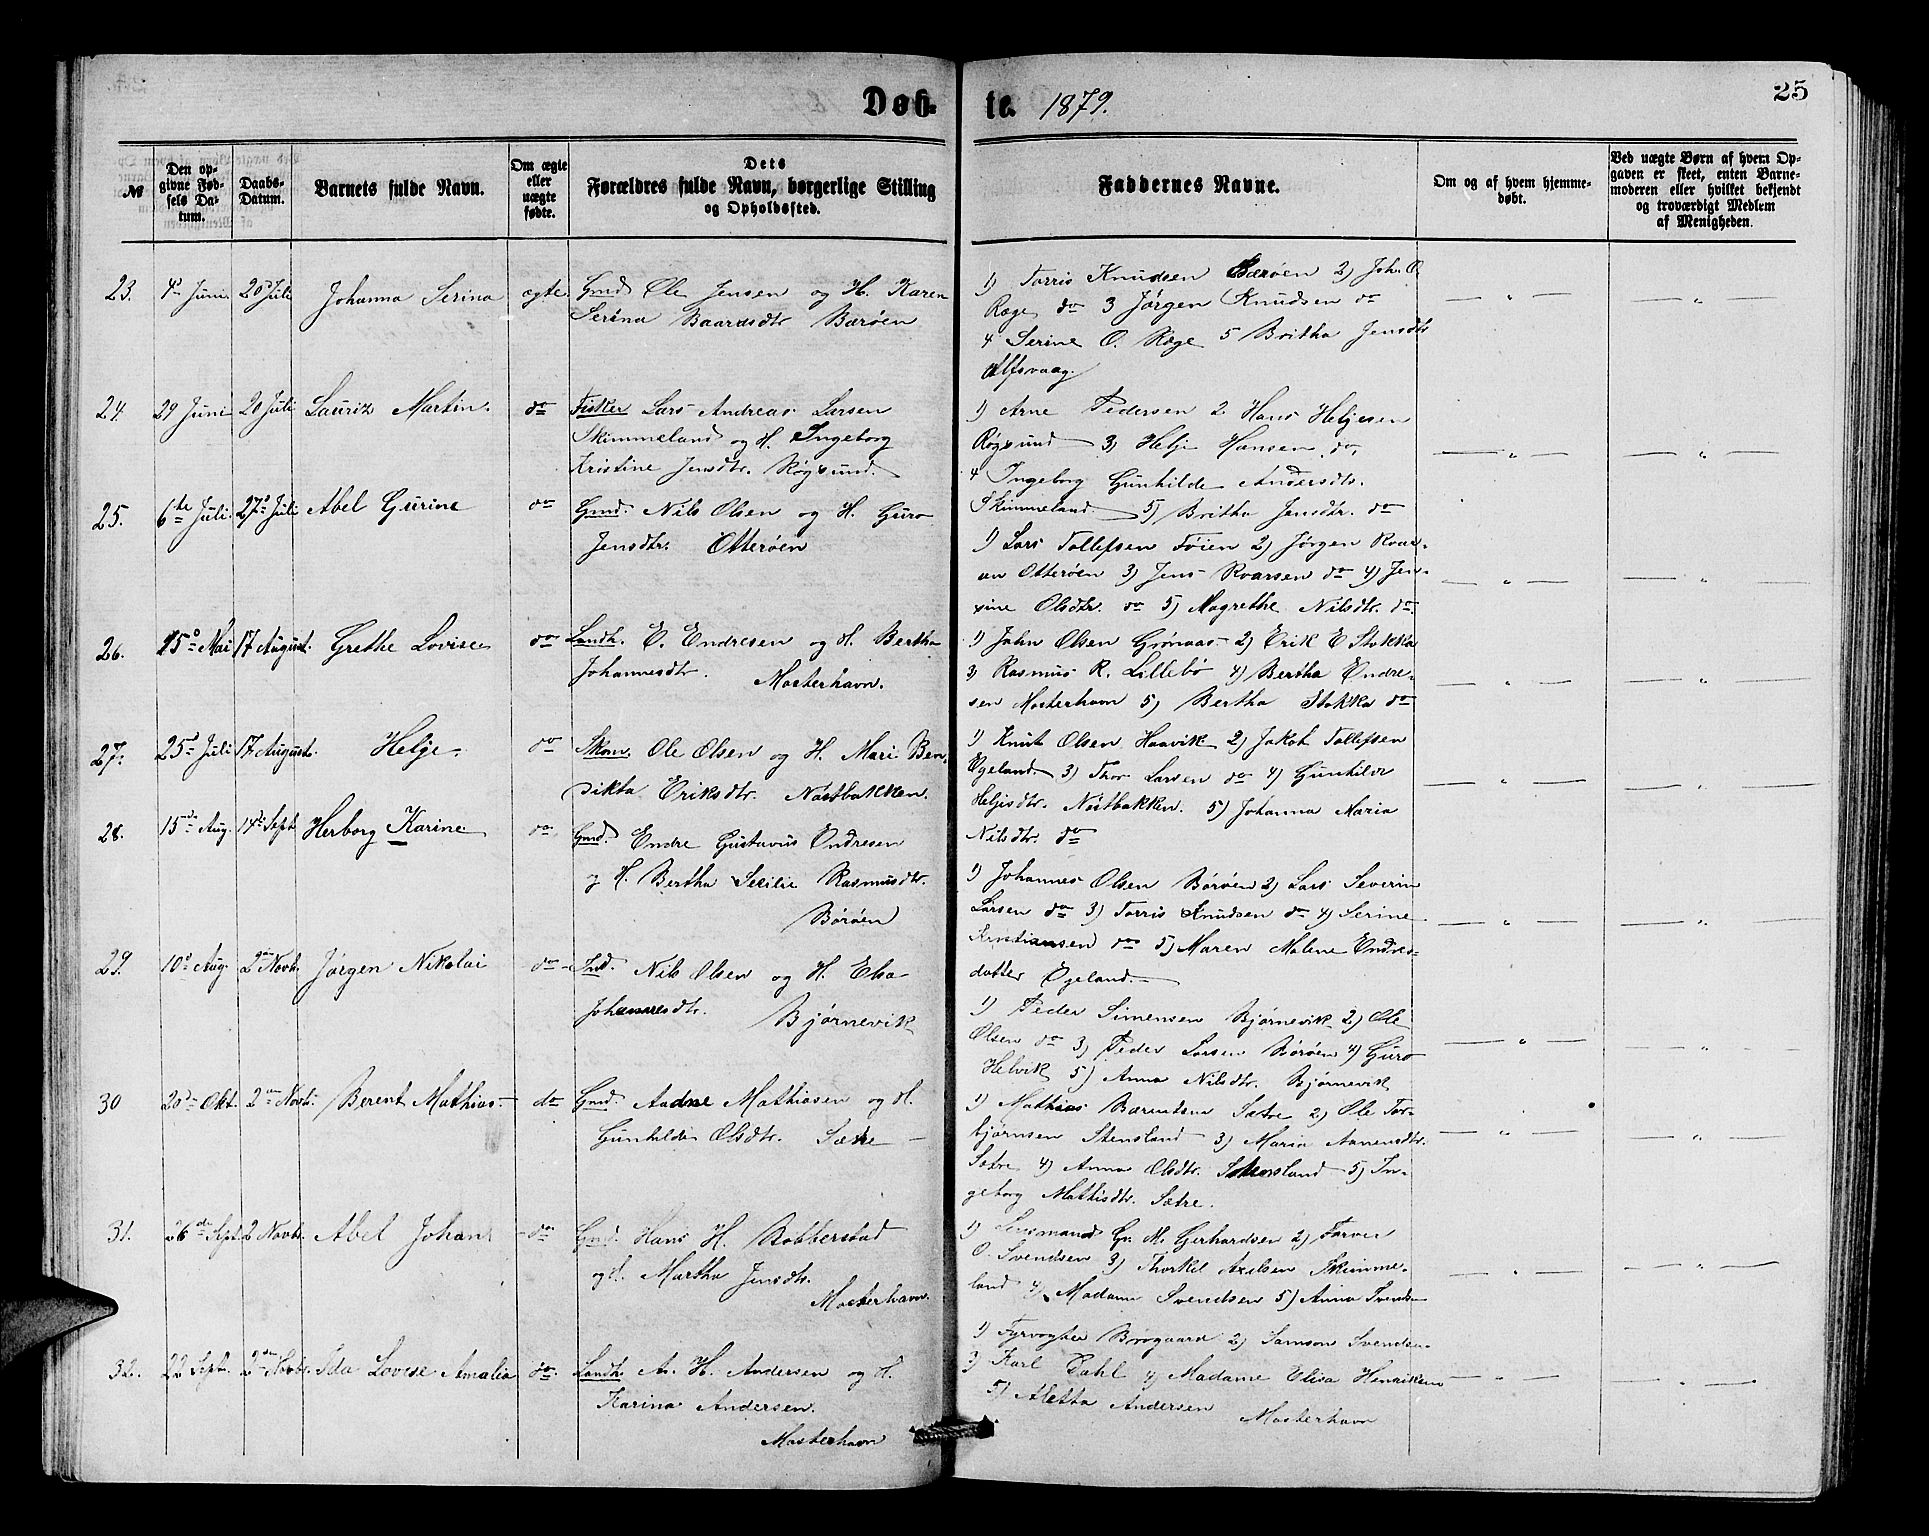 Døb-
te. 1879.
25
№
Den op-
givne Fød-
sels Da-
tum.
Daabs-
Datum.
Barnets fulde Navn.
Om ægte
eller
uægte
fødte.
Dets
Forældres fulde Navn, borgerlige Stilling
og Opholdssted.
Faddernes Navne.
Om og af hvem hjemme-
døbt.
Ved uægte Børn af hvem Op-
gaven er skeet, enten Barne-
moderen eller hvilket bekjendt
og troværdigt Medlem
af Menigheden.
23. 4de Juni 20de Juli Johanna Serina ægte. Gmd. Ole Jensen og H. Karen
Serina Baardsdtr Børøen
1) Torris Knudsen Børøen 2) Joh. O.
Røge do 3 Jørgen Knudsen do
4 Serine O. Røge 5 Britha Jensdtr
Alfsvaag.
24. 29 Juni 20 Juli Lauriz Martin. do Fisker Lars Andreas Larsen
Skimmeland og H. Ingeborg
Kristine Jensdtr. Røgsund.
1) Arne Pedersen 2 Hans Heljesen
Røgsund 3) Helje Hansen do,
4 Ingeborg Gunhilde Andersdtr.
Skimmeland. 5) Britha Jensdtr. do
25. 6te Juli. 27de Juli Abel Gurine do Gmd. Nils Olsen og H. Guro
Jensdtr. Otterøen
1) Lars Tollefsen Føien 2) Jørgen Roar-
sen Otterøen 3) Jens Roarsen do 4) Jen-
sine Olsdtr. do 5) Magrethe Nilsdtr. do
26. 15de Mai 17 August. Grethe Lovise do Landh. E. Endresen og H. Bertha
Johannesdtr. Mosterhavn.
1) John Olsen Grønaas 2) Erik E Stokka
3) Rasmus R. Lillebø 4) Bertha Endre-
sen Mosterhavn 5) Bertha Stokka do
27. 25de Juli 17 August. Helje. do Skom. Ole Olsen og H. Mari Ben-
dikta Eriksdtr. Nøstbakken.
1) Knut Olsen Haavik 2) Jakob Tollefsen
Øgeland. 3) Thor Larsen do 4) Gunhilde
Heljesdtr. Nøstbakken. 5) Johanna Maria
Nilsdtr. do
28. 15de Aug. 14de Sept. Herborg Karine do Gmd. Endre Gustavus Endresen
og H. Bertha Secilie Rasmusdtr.
Børøen
1) Johannes Olsen Børøen 2) Lars Severin
Larsen do 3) Torris Knudsen do 4) Serine
Kristiansen do 5) Maren Malene Endres-
datter Øgeland.
29. 10de Aug. 2den Novb. Jørgen Nikolai do Ind. Nils Olsen og H. Elsa
Johannesdtr. Bjørnevik
1) Peder Simensen Bjørnevik 2) Ole
Olsen do 3) Peder Larsen Børøen 4) Guro
Helvik 5) Anna Nilsdtr. Bjørnevik
30 20de Okt. 2den Novb. Berent Mathias do Gmd. Aadne Mathiasen og H.
Gunhilde Olsdtr. Sætre
1) Mathias Bærentsen Sætre 2) Ole Tor-
bjørnsen Stensland 3) Maria Aanensdtr.
Sætre 4) Anna Olsdtr. Stensland 5) In-
geborg Mathisdtr. Sætre.
31. 26de Sept. 2 Novbr. Abel Johans do Gmd. Hans H. Robberstad
og H. Martha Jensdtr.
Mosterhavn.
1) Lensmand Gr. M. Gerhardsen 2) Farver
O. Svendsen 3) Thorkel Axelsen Skimme-
land 4) Madam Svendsen 5) Anna Svendsen
32. 22 Sept. 2den Novbr. Ida Lovise Amalia do. Landh. A. H. Andersen og H.
Karina Andersen.
Mosterhavn
1) Fyrvogter Brogaard 2) Samson Svendsen
3) Karl Dahl 4) Madame Elisa Henriksen
5) Aletta Andersen Mosterhavn